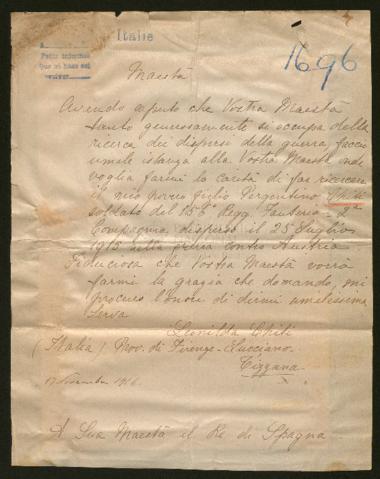 Italie
1696
Pedir informes
Que se hace así
Maestà
Avendo saputo che Vostra Maestà
tanto generosamente si occupa della
ricerca dei dispersi della guerra, faccio
umile istanza alla Vostra Maestà onde
voglia farmi la carità di far ricercare
il mio povero figlio Pergentino Chiti
soldato del 156 Regg. Fanteria - 2ª
Compagnia disperso il 25 Luglio
1915 nella guerra contro Austria
Fiduciosa che Vostra Maestà vorrà
farmi la grazia che domando, mi
procuro l'onore di dirmi umilissima
serva
Leonilda Chiti
(Italia) Prov. di Firenze - Lucciano.
Tizzana
Novembre 1916
A Sua Maestà il Re di Spagna